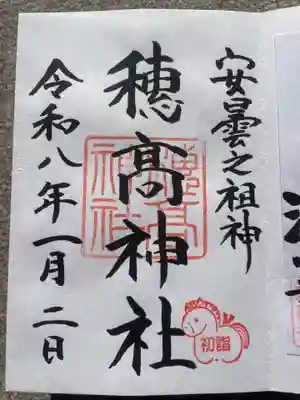 安曇之祖神
穂髙神社
令和八年一月二日
穂高神社
初詣